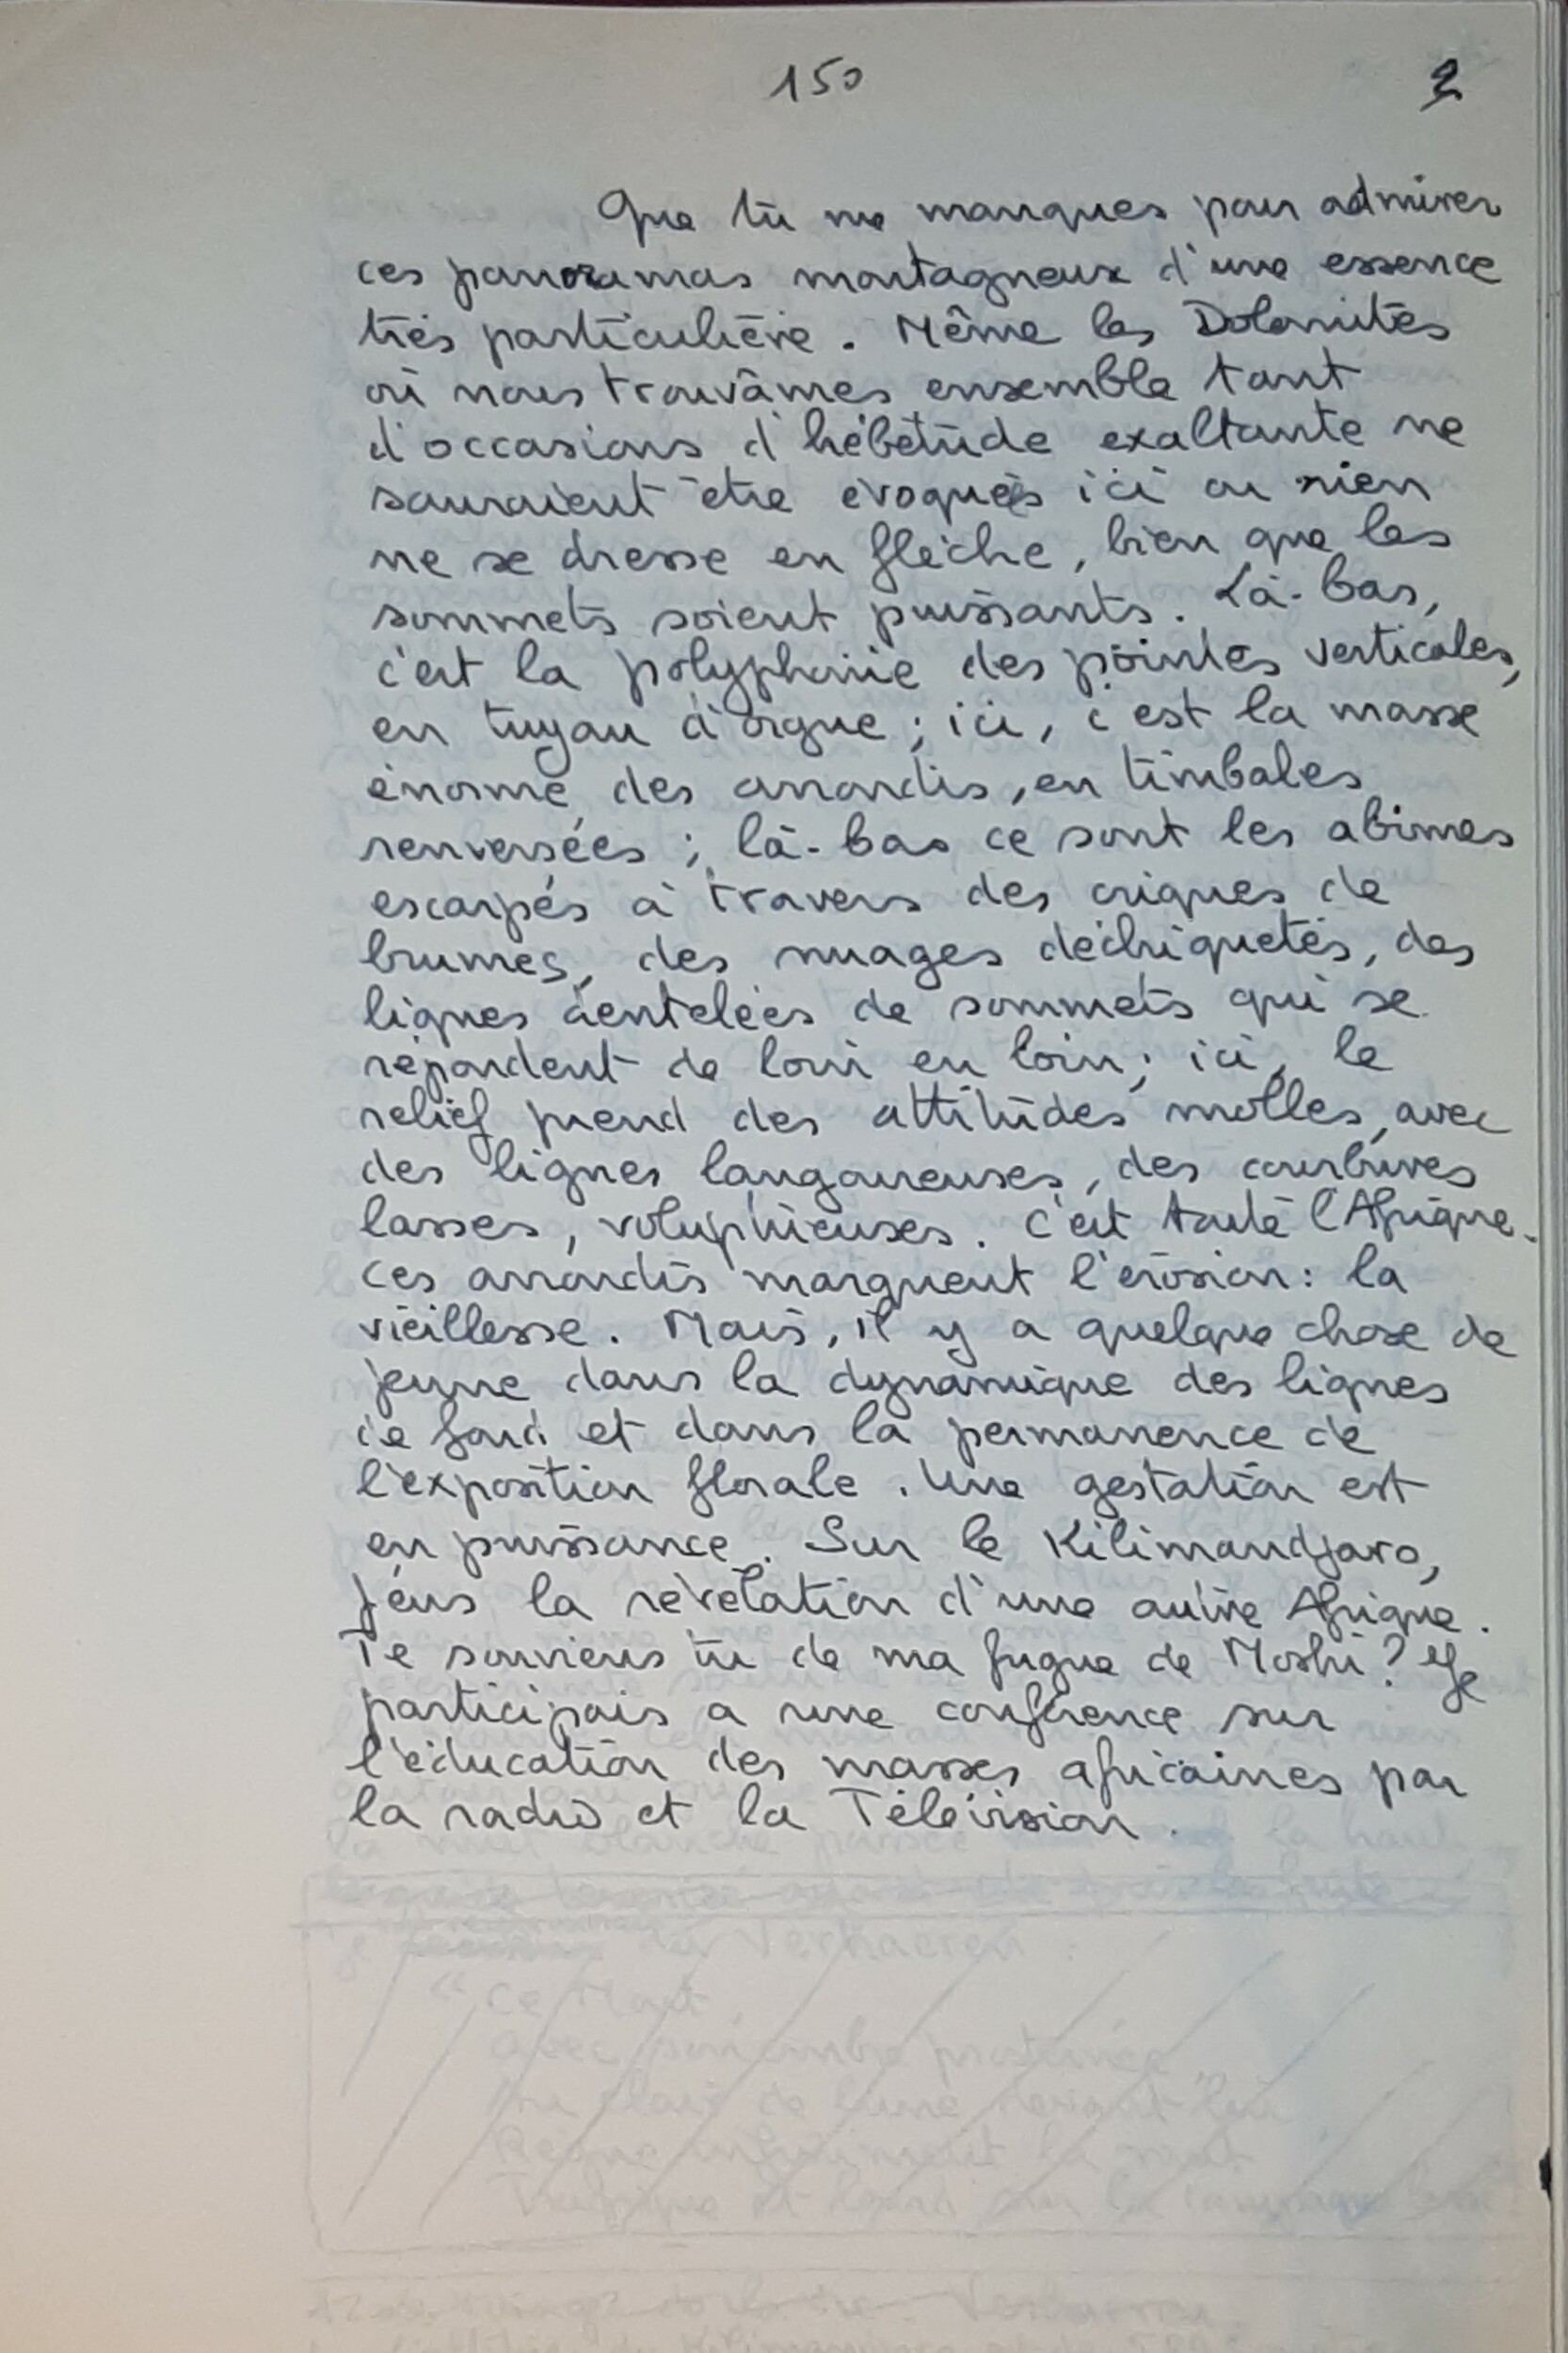 150 2
Que tu me manques pour admirer
ces panoramas montagneux d'une essence
très particulière. Même les Dolomites
où nous trouvâmes ensemble tant
d'occasions d'hébétude exaltante ne
sauraient être évoqués ici où rien
ne se dresse en flèche, bien que les
sommets soient puissants. Là-bas,
c'est la polyphonie des pointes verticales,
en tuyau d'orgue ; ici, c'est la masse
énorme des arrondis, en timbales
renversées ; là-bas ce sont les abimes
escarpés à travers des criques de
brumes, des nuages déchiquetés, des
lignes dentelées de sommets qui se
répondent de loin en loin ; ici, le
relief prend des attitudes molles, avec
des lignes langoureuses, des courbures
lasses, voluptueuses. C'est toute l'Afrique.
Ces arrondis marquent l'érosion : la
vieillesse. Mais, il y a quelque chose de
jeune dans la dynamique des lignes
de fond et dans la permanence de
l'exposition florale. Une gestation est
en puissance. Sur le Kilimandjaro,
j'eus la révélation d'une autre Afrique.
Te souviens tu de ma fugue de Moshi ? Je
participais a une conférence sur
l'éducation des masses africaines par
la radio et la Télévision.